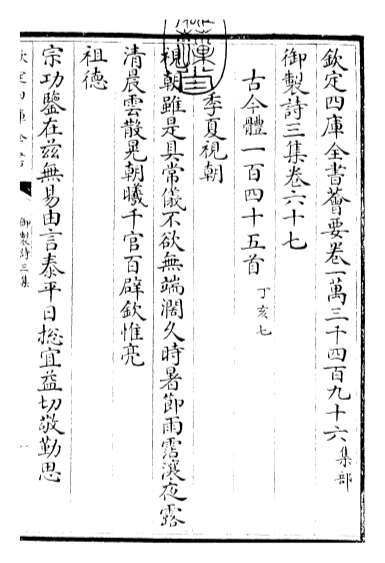 欽定四庫全書薈要卷一萬三千四百九十六 集部
御製詩三集卷六十七
古今體一百四十五首 丁亥七
季夏視朝
視朝雖是具常儀不欲無端濶久時暑節雨霑溼夜露
清晨雲散晃朝曦千官百辟欽惟亮
祖德
宗功鑒在兹無易由言泰平日揔宜益切敬勤思
欽定四庫全書
御製詩三集
一